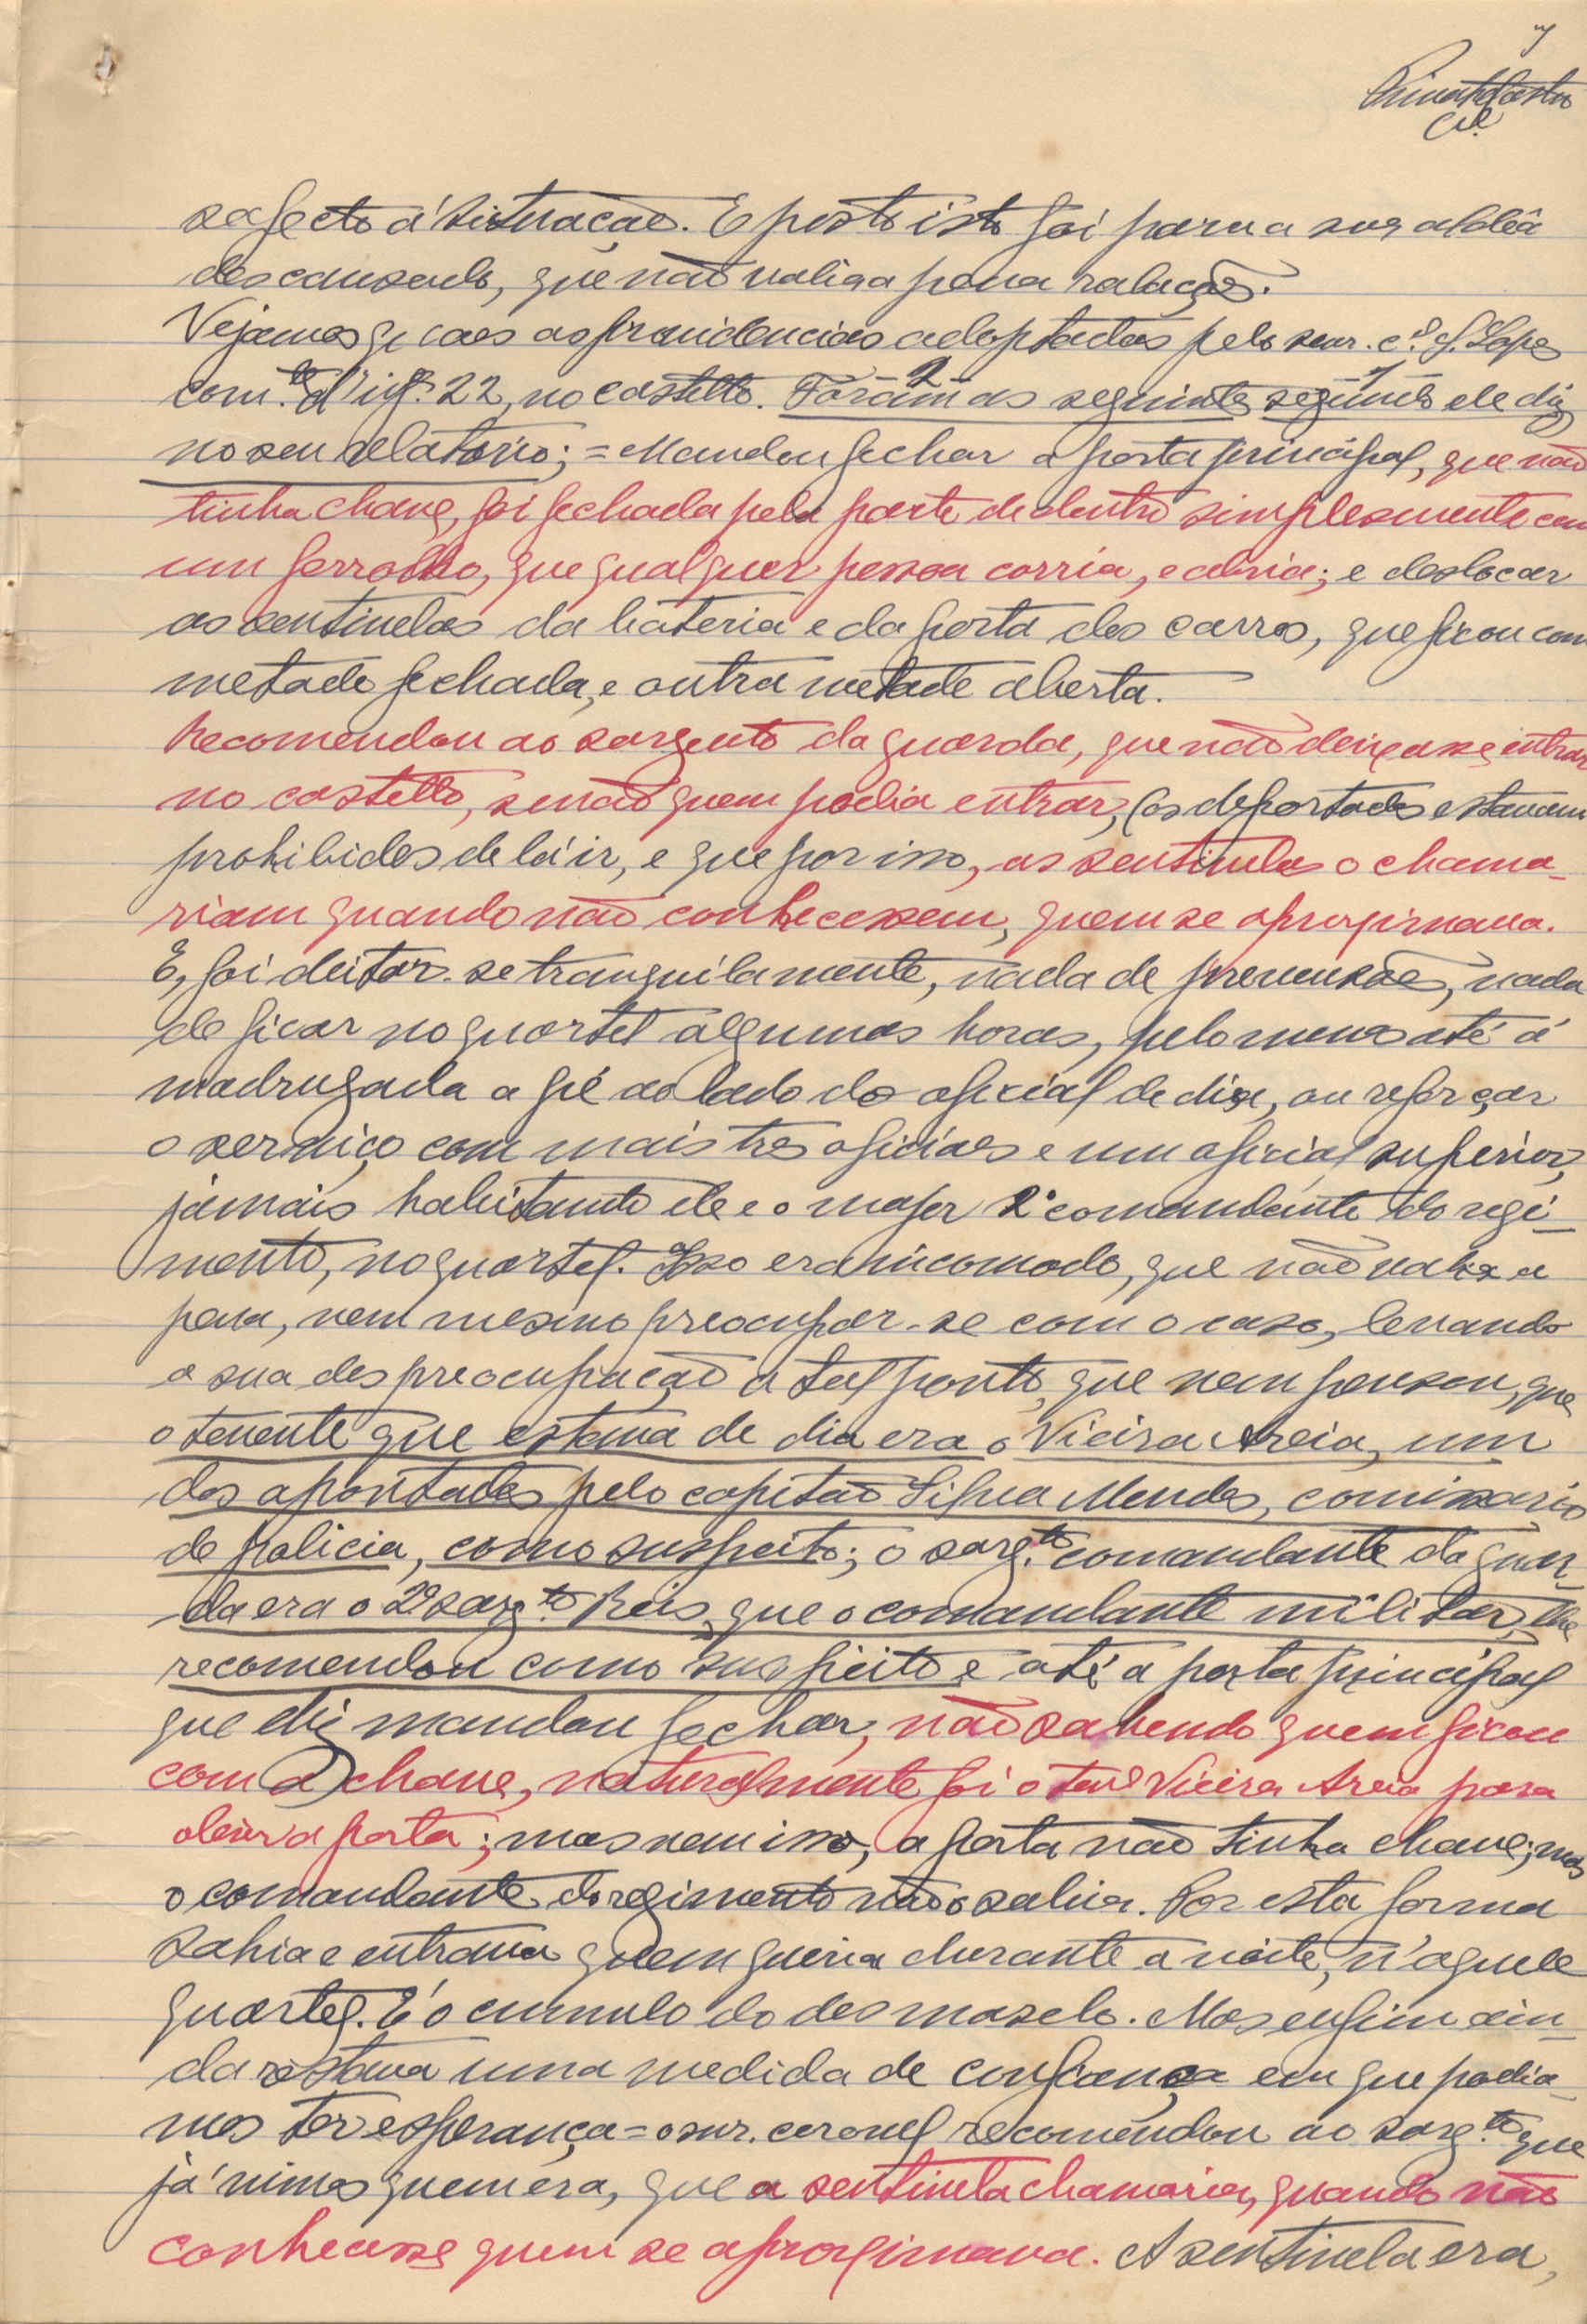 7
Cel.
safecto á situação. E posto isto foi para a sua aldeâ
descansado, que não valia a pena ralações.
Vejamos quaes as providencias adoptadas pelo snr. c.el S. Lopes
com.te d'inf.ª 22, no castello. Foram as seguintes segundo ele diz
no seu relatorio; = Mandou fechar a porta principal, que não
tinha chave, foi fechada pela parte de dentro simplesmente com
um ferrolho, que qualquer pessoa corria, e abria; e deslocar
as sentinelas da bateria e da porta dos carros, que ficou com
metade fechada, e outra metade aberta.
Recomendou ao sargento da guarda, que não deixasse entrar
no castello, senão quem podia entrar, (os deportados estavam
prohibidos de lá ir, e que por isso, as sentinelas o chama-
riam quando não conhecessem, quem se aproximava.
E, foi deitar-se tranquilamente, nada de prevensões, nada
de ficar no quartel algumas horas, pelo menos até á
madrugada a pé ao lado do oficial de dia, ou reforçar
o serviço com mais tres oficiaes e um oficial superior,
jamais habitando ele e o major 2º comandante do regi-
mento, no quartel. Isso era incomodo, que não valia a
pena, nem mesmo preocupar-se com o caso, levando
a sua despreocupação a tal ponto, que nem pensou, que
o tenente que estava de dia era o Vieira Areia, um
dos apontados pelo capitão Silva Mendes, comissario
de policia, como suspeito; o sarg.to comandante da guar-
da era o 2º sarg.to Reis, que o comandante militar, lhe
recomendou como suspeito e até a porta principal
que diz mandou fechar, não sabendo quem ficou
com a chave, naturalmente foi o ten.e Vieira Areia para
abrir a porta; mas nem isso, a porta não tinha chave; mas
o comandante do regimento não o sabia. Por esta forma
sahia e entrava quem queria durante a noite, n'aquele
quartel. E' o cumulo do desmaselo. Mas enfim ain-
da restava uma medida de confiança em que podia-
mos ter esperança = o snr. coronel recomendou ao sarg.to que
já vimos quem era, que a sentinela chamaria, quando não
conhecesse quem se aproximava. A sentinela era,